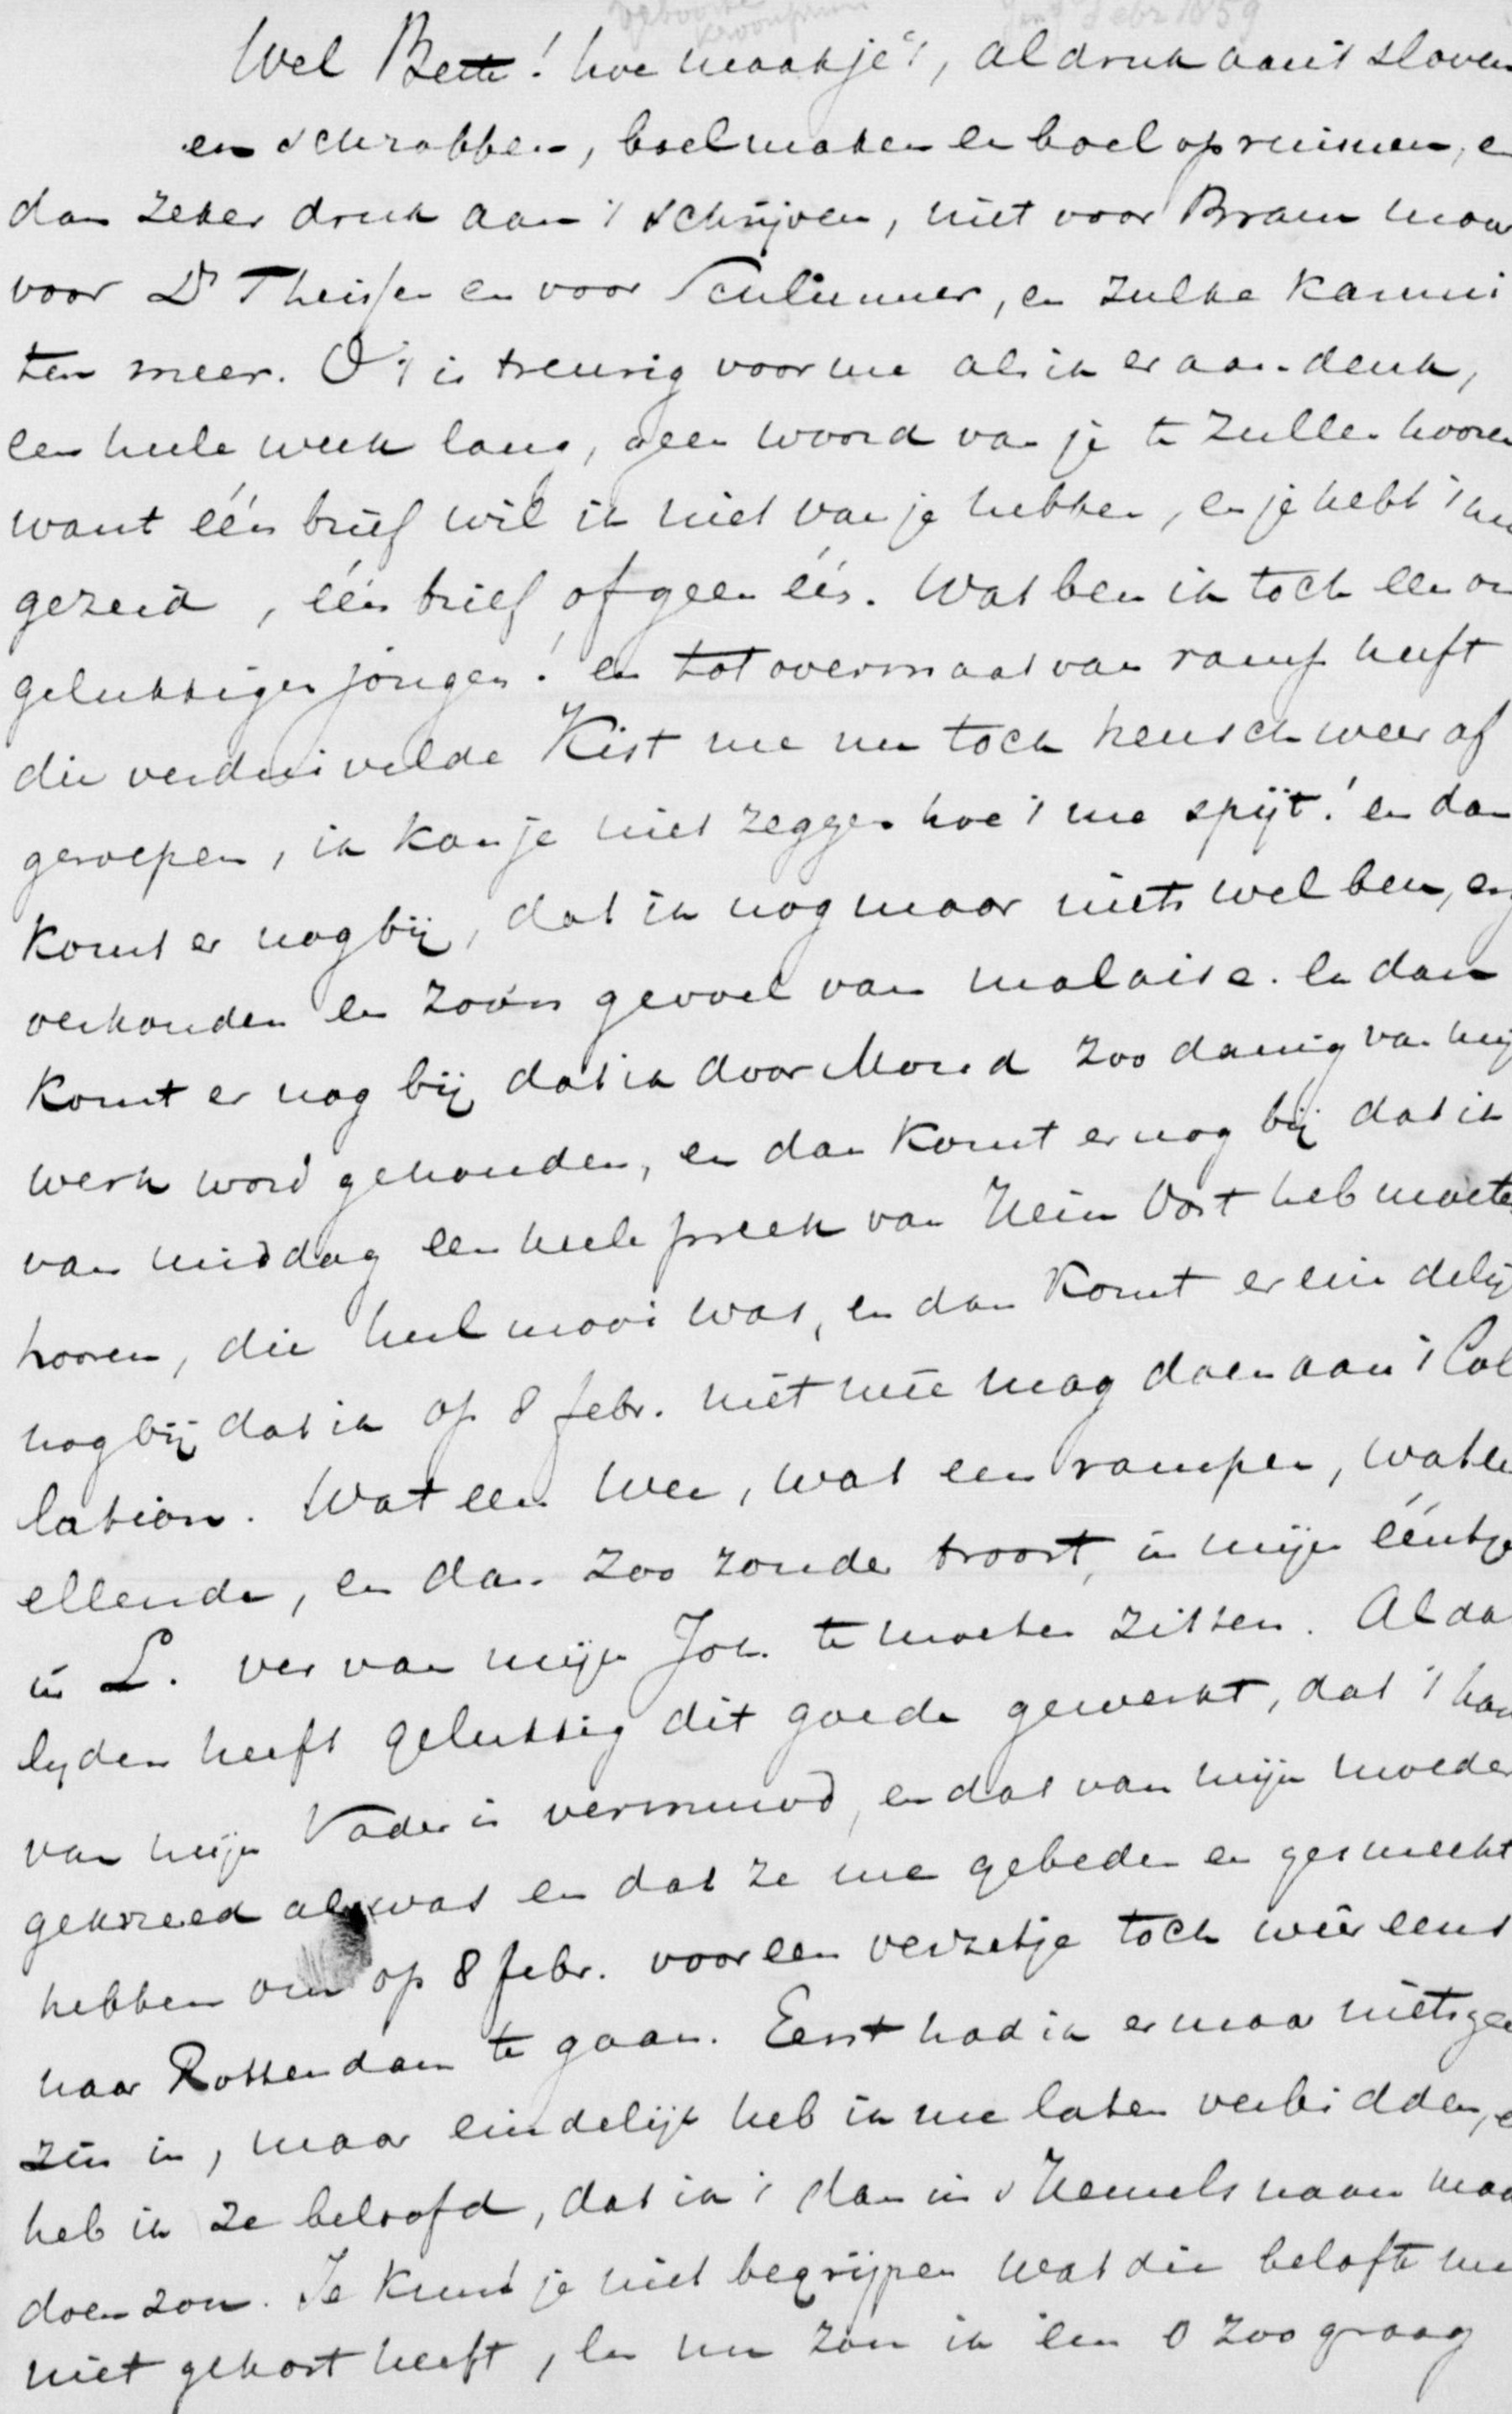 geboorte Jan/Febr 1859
kroonprins
Wel Bette! hoe maak je 't, al druk aan 't sloven
en schrobben, boel maken en boel opruimen, en
dan zeker druk aan 't schrijven, niet voor Bram maar
voor Dr Theissen en voor Schlimmer, en zulke kannii
ten meer. O 't is treurig voor me als ik er aan denk,
een heele week lang, geen woord van je te zullen hooren
want één brief wil ik niet van je hebben, en je hebt 't me
gezeid, één brief of geen één. Wat ben ik toch een on
gelukkigen jongen! en tot overmaat van ramp heeft
die verduivelde Kist me nu toch heusch weer af
geroepen, ik kan je niet zeggen hoe 't me spijt! en dan
komt er nog bij, dat ik nog maar niets wel ben, erg
verkouden en zoo'n gevoel van malaise. en dan
komt er nog bij dat ik door Mond zoo danig van mijn
werk word gehouden, en dan komt er nog bij dat ik
van middag een heele preek van Hein Vost heb moeten
hooren, die heel mooi was, en dan komt er eindelijk
nog bij dat ik op 8 febr. niet mee mag doen aan 't Col
lation. Wat een wee, wat een rampen, wat een
ellende, en dan zoo zonder troost, in mijn ééntje
in L. ver van mijn Joh. te moeten zitten. Al dat
lyden heeft gelukkig dit goede gewerkt, dat 't hart
van mijn Vader is vermurwd, en dat van mijn moeder
gekneed als was en dat ze me gebeden en gesmeekt
hebben om op 8 febr. voor een verzetje toch wéér eens
naar Rotterdam te gaan. Eerst had ik er maar niets geen
zin in, maar eindelijk heb ik me laten verbidden, en
heb ik ze beloofd, dat ik 't dan in 's Hemels naam maar
doen zou. Je kunt je niet begrijpen wat die belofte me
niet gekost heeft, en nu zou ik één o zoo graag